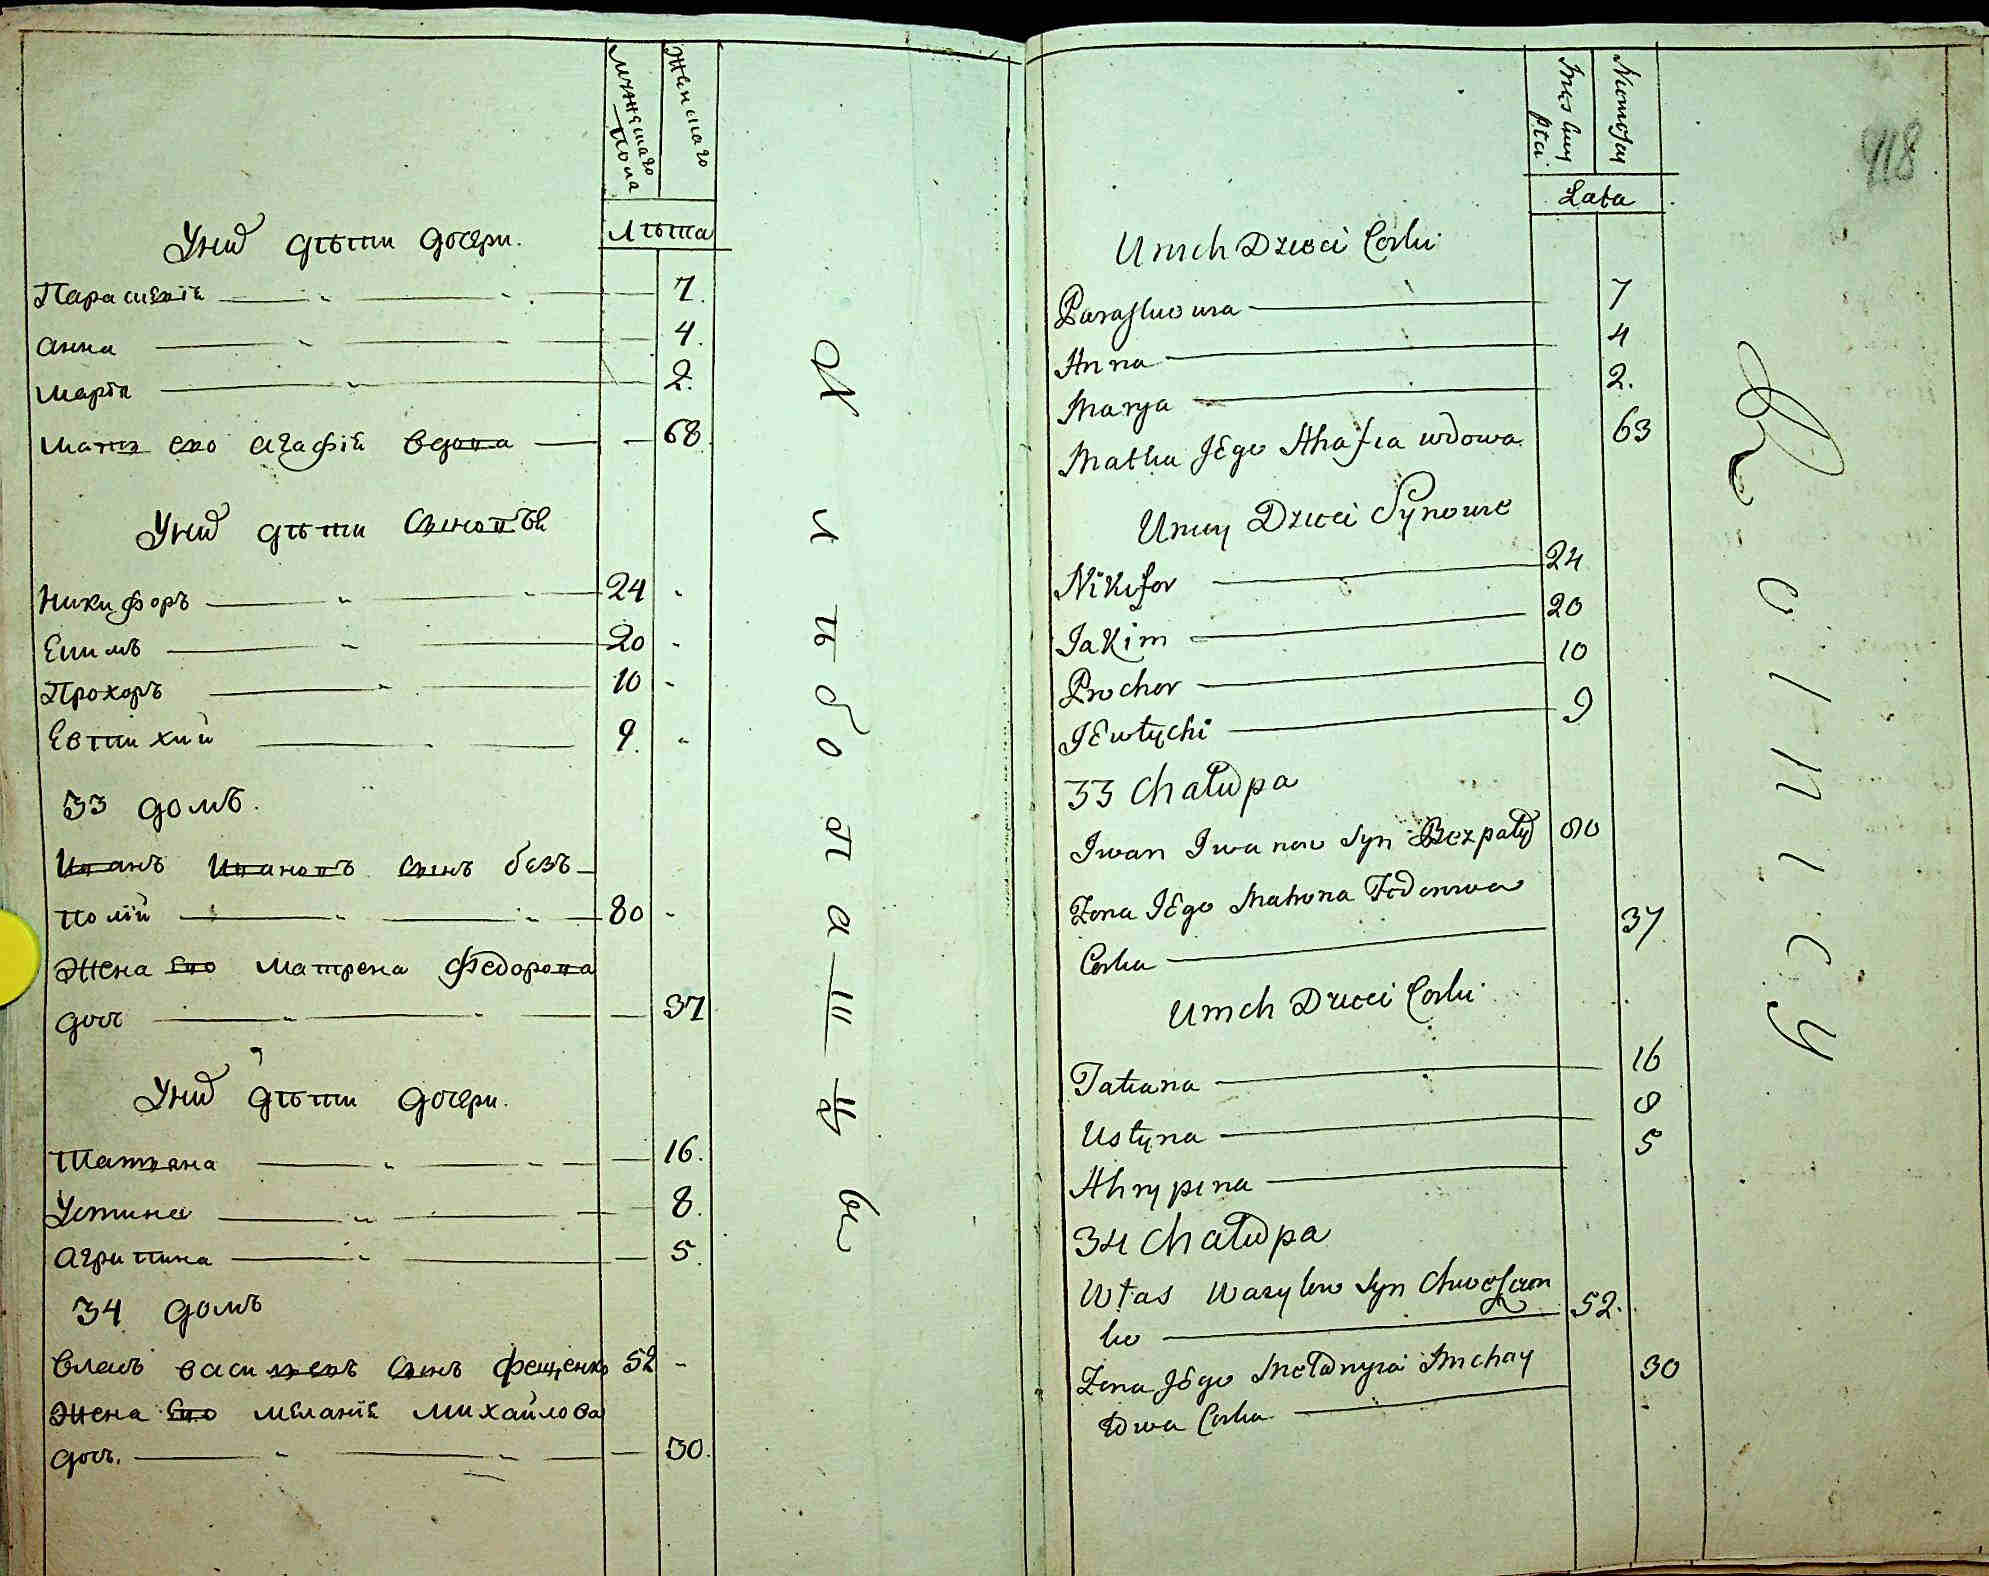 мужеска́го пола
Женскаго
Лѣта
Унıхъ дѣти дочери.
Параскевіѣ 7.
Анна 4.
Марія 2.
Мать ево Агафіѣ вдова 68
Унихъ дѣти сыновьѣ
Никифоръ 24
Екимъ 20
Прохоръ 10
Евтихий 9.
33 домъ.
Иванъ Ивановъ сынъ безъ
полій 80
Жена ево Матрена Федорова
дочь 37
Унихъ дѣти дочери.
Татьяна 16.
Устина 8.
Агрипина 5.
34 домъ
Власъ Васильевъ сынъ Фещенко 52
Жена ево Меланіѣ Михайлова
дочь. 30.
Хлѣбопашцы
418
Męskiey płci
Niewiesciey
Lata
Unich Dzieci Corki
Paraskiewia 7
Anna 4
Marya 2.
Matka Jego Ahafia wdowa 63
Unich Dzieci Synowie
Nikifor 24
Jakim 20
Prochor 10
JEwtychi 9
33 Chałupa
Iwan Iwanow Syn Bezpały 80
Żona JEgo Matrona Fedorowa
Corka 37
Unich Dzieci Corki
Tatiana 16
Ustyna 8
Ahrypina 5
34 Chałupa
Włas Wasylew Syn
ko 52.
Żona JEgo Mełanyia Michay
łowa Corka 30
Rolnicy